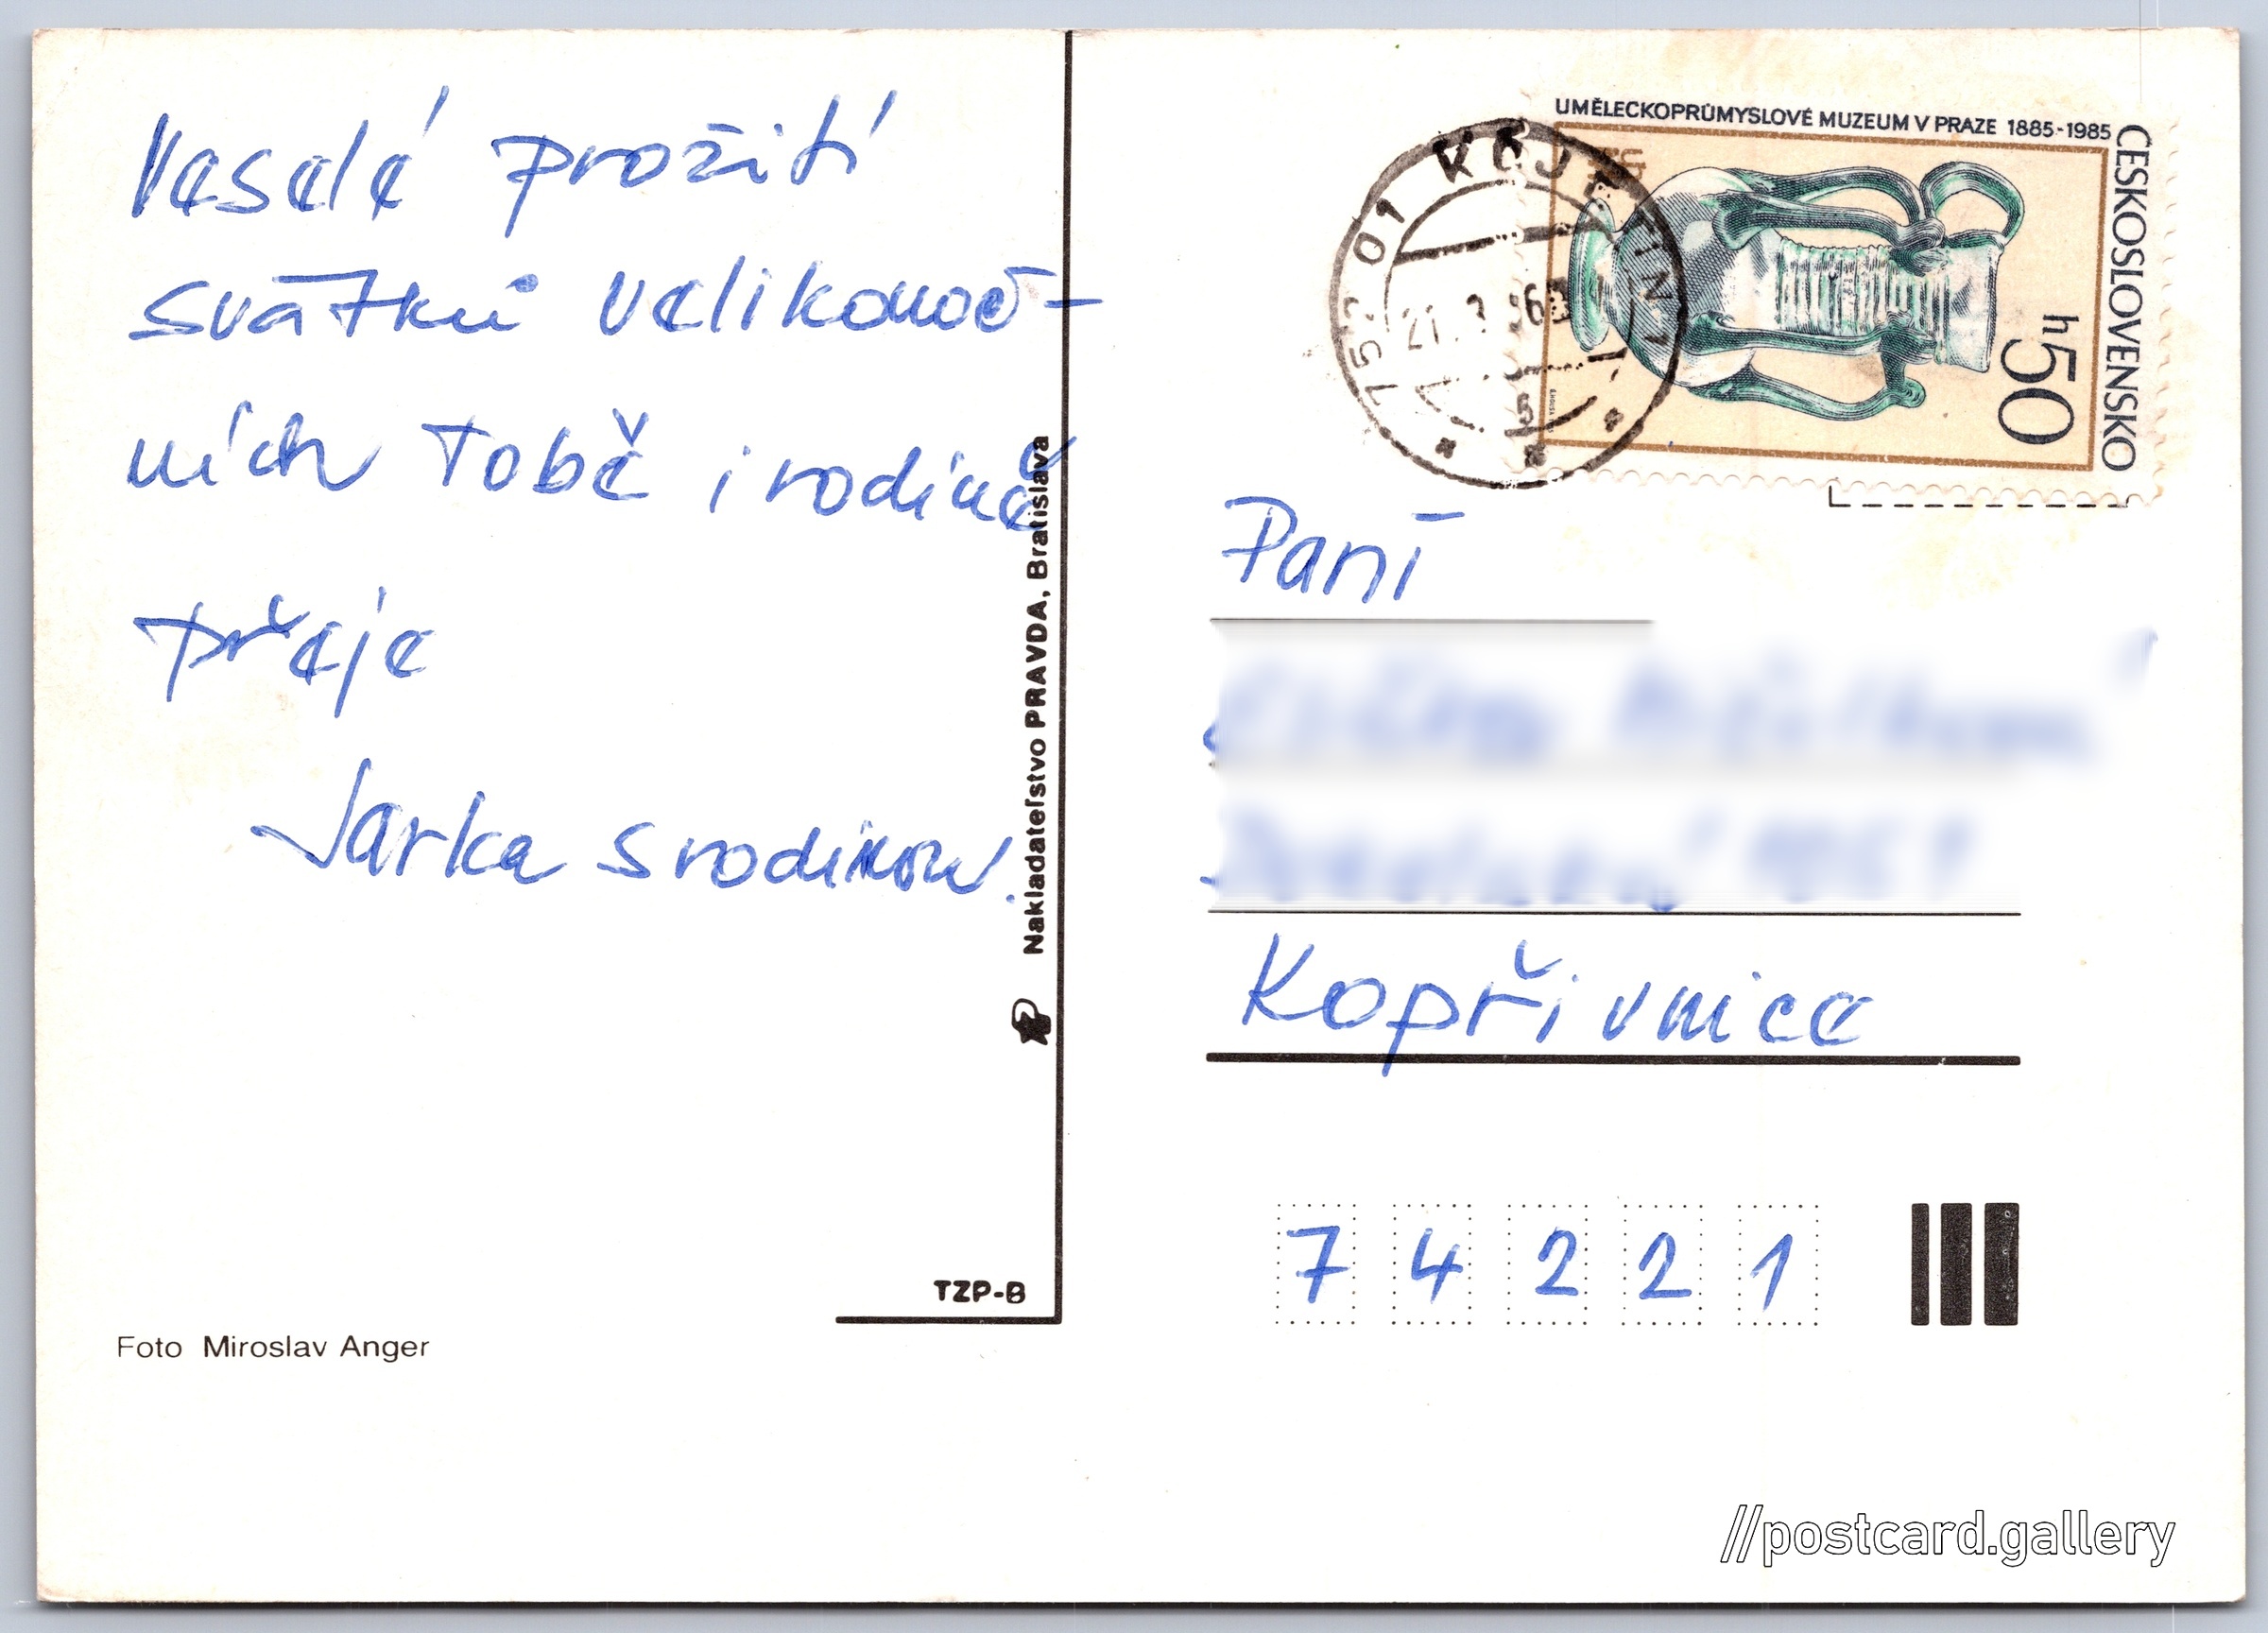 Veselé prožití
svátků velikonoč-
ních Tobě i rodině
přeje
Jarka s rodinou.
Nakladateľstvo PRAVDA, Bratislava
TZP-B
Foto Miroslav Anger
UMĚLECKOPRŮMYSLOVÉ MUZEUM V PRAZE 1885-1985
ČESKOSLOVENSKO
h50
752 01 KOJETÍN 1
Paní
Kopřivnice
7 4 2 2 1
//postcard.gallery